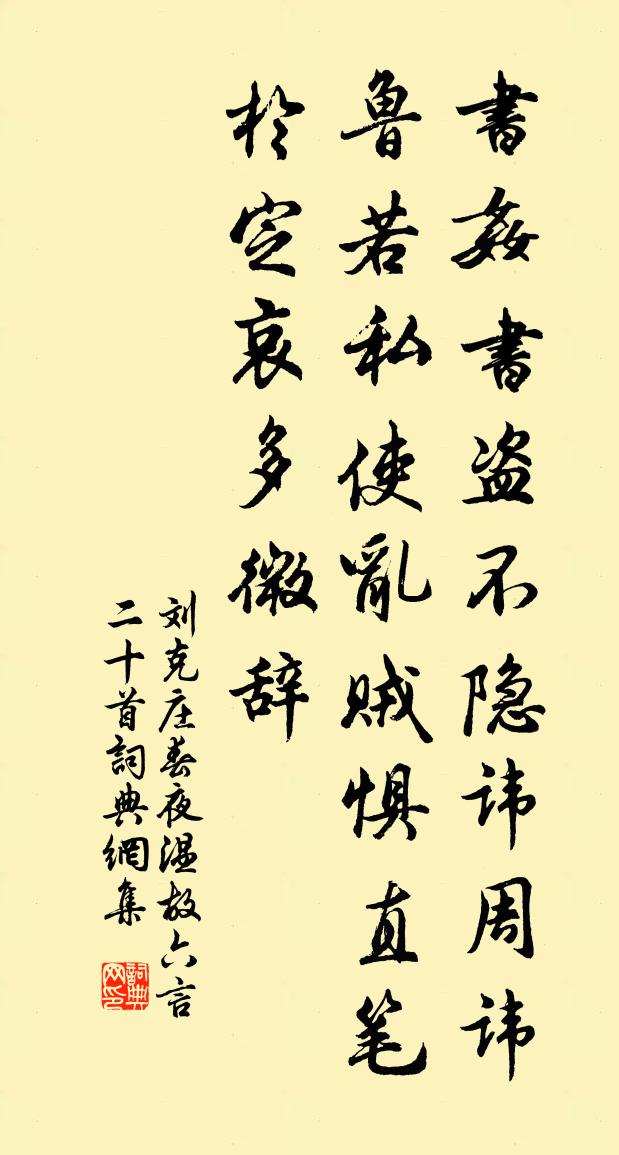 書姦書盗不隐讳周讳
鲁若私使亂贼惧直笔
於定哀多微辞
刘克庄春夜温故六言
二十首詞典網集
詞典网印